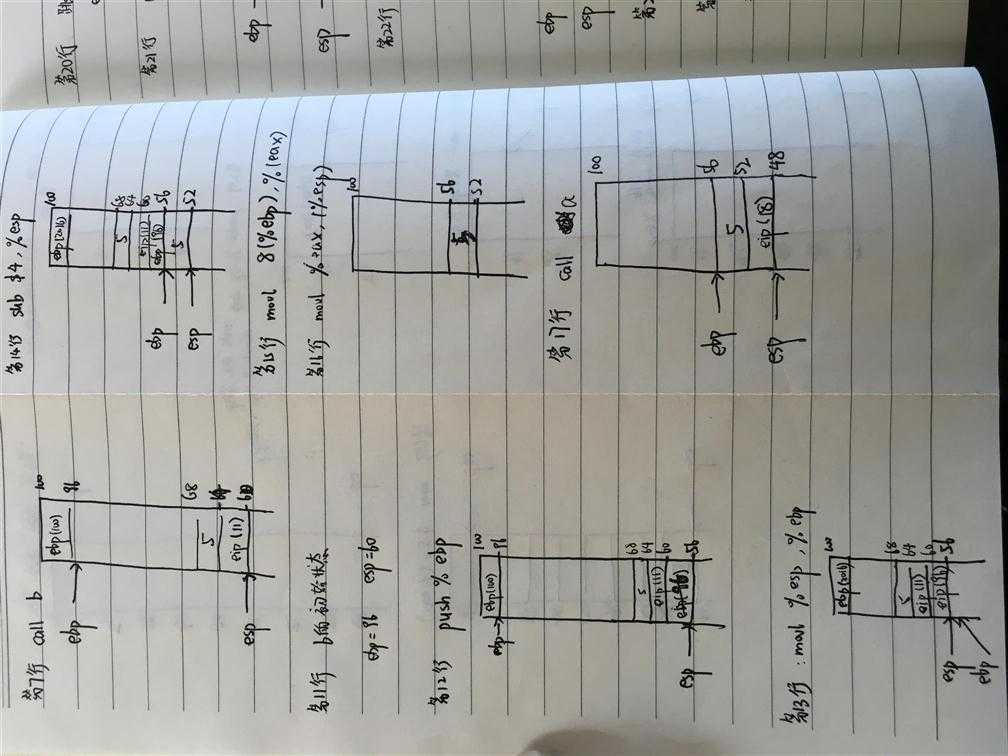 第7行 call b
100
ebp(100)
96
ebp
68
5
64
eip(11)
60
esp
第11行 b的初始状态
ebp=96 esp=60
第12行 push %ebp
100
ebp(100)
96
ebp
68
64
5
60
eip(11)
56
esp
第13行: movl %esp, %ebp
100
68
64
5
60
eip(11)
56
esp
ebp
第14行 sub $4, %esp
100
68
64
5
60
eip(11)
56
ebp(96)
5
52
ebp
esp
第15行 movl 8(%ebp), %(eax)
第16行 movl %eax, (%esp)
100
56
5
52
第17行 call a
100
56
5
52
eip(18)
48
ebp
esp
第20行 跳
第21行
ebp
esp
第22行
ebp
esp